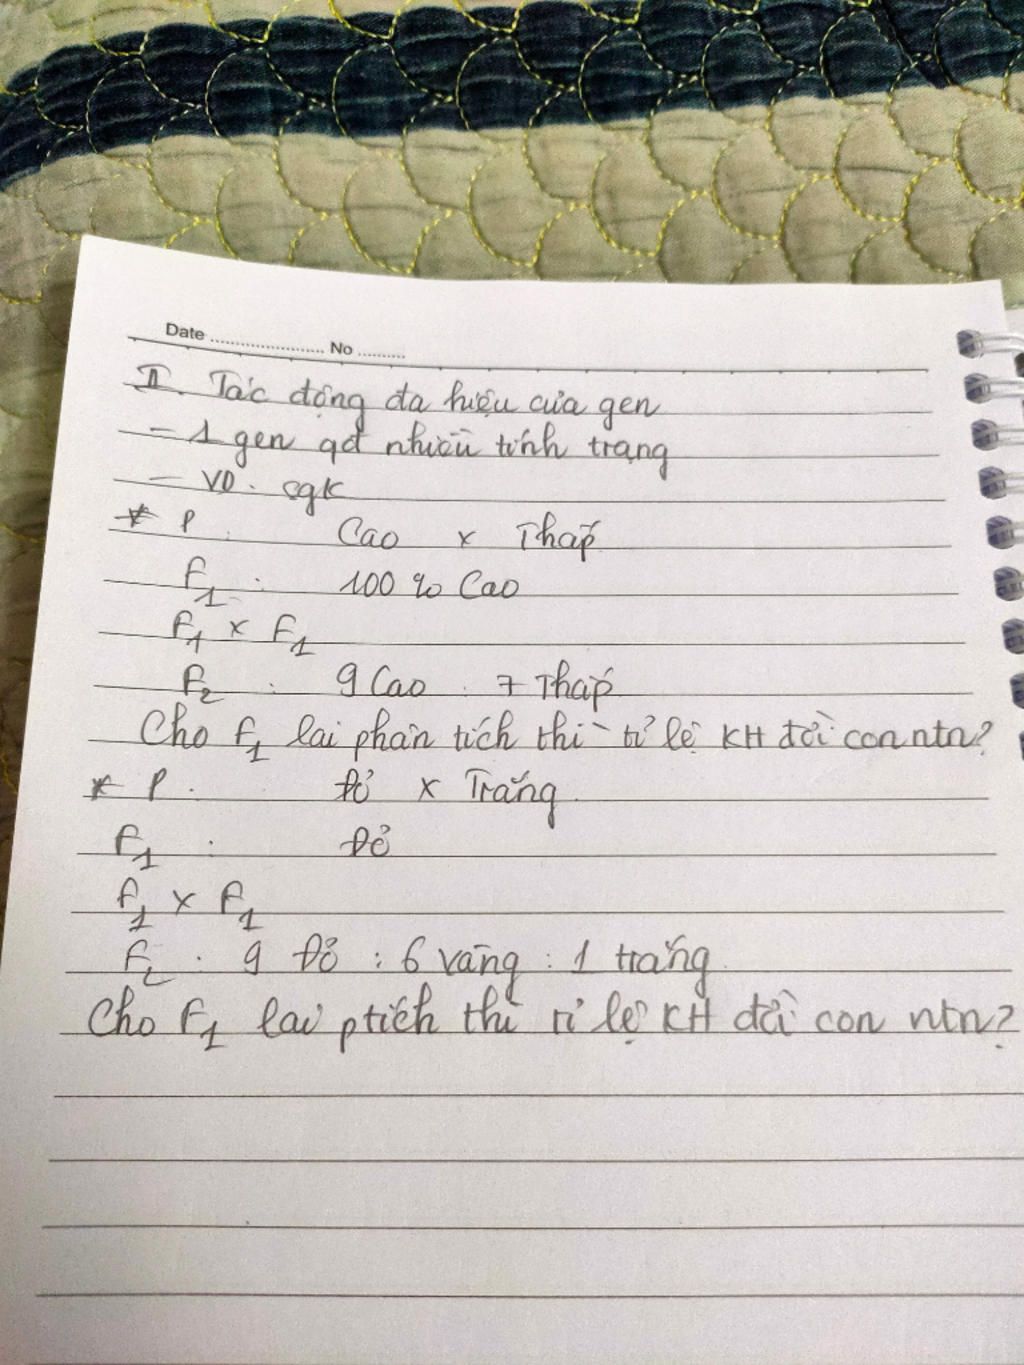 Date ........................ No ..........
II. Tác động đa hiệu của gen
- 1 gen qđ nhiều tính trạng
- VD. sgk
* P. Cao x Thấp
F1 : 100 % Cao
F1 x F1
F2 : 9 Cao : 7 Thấp
Cho F1 lai phân tích thì tỉ lệ KH đời con ntn?
* P. Đỏ x Trắng
F1 : Đỏ
F1 x F1
F2 : 9 Đỏ : 6 vàng : 1 trắng
Cho F1 lai ptích thì tỉ lệ KH đời con ntn?